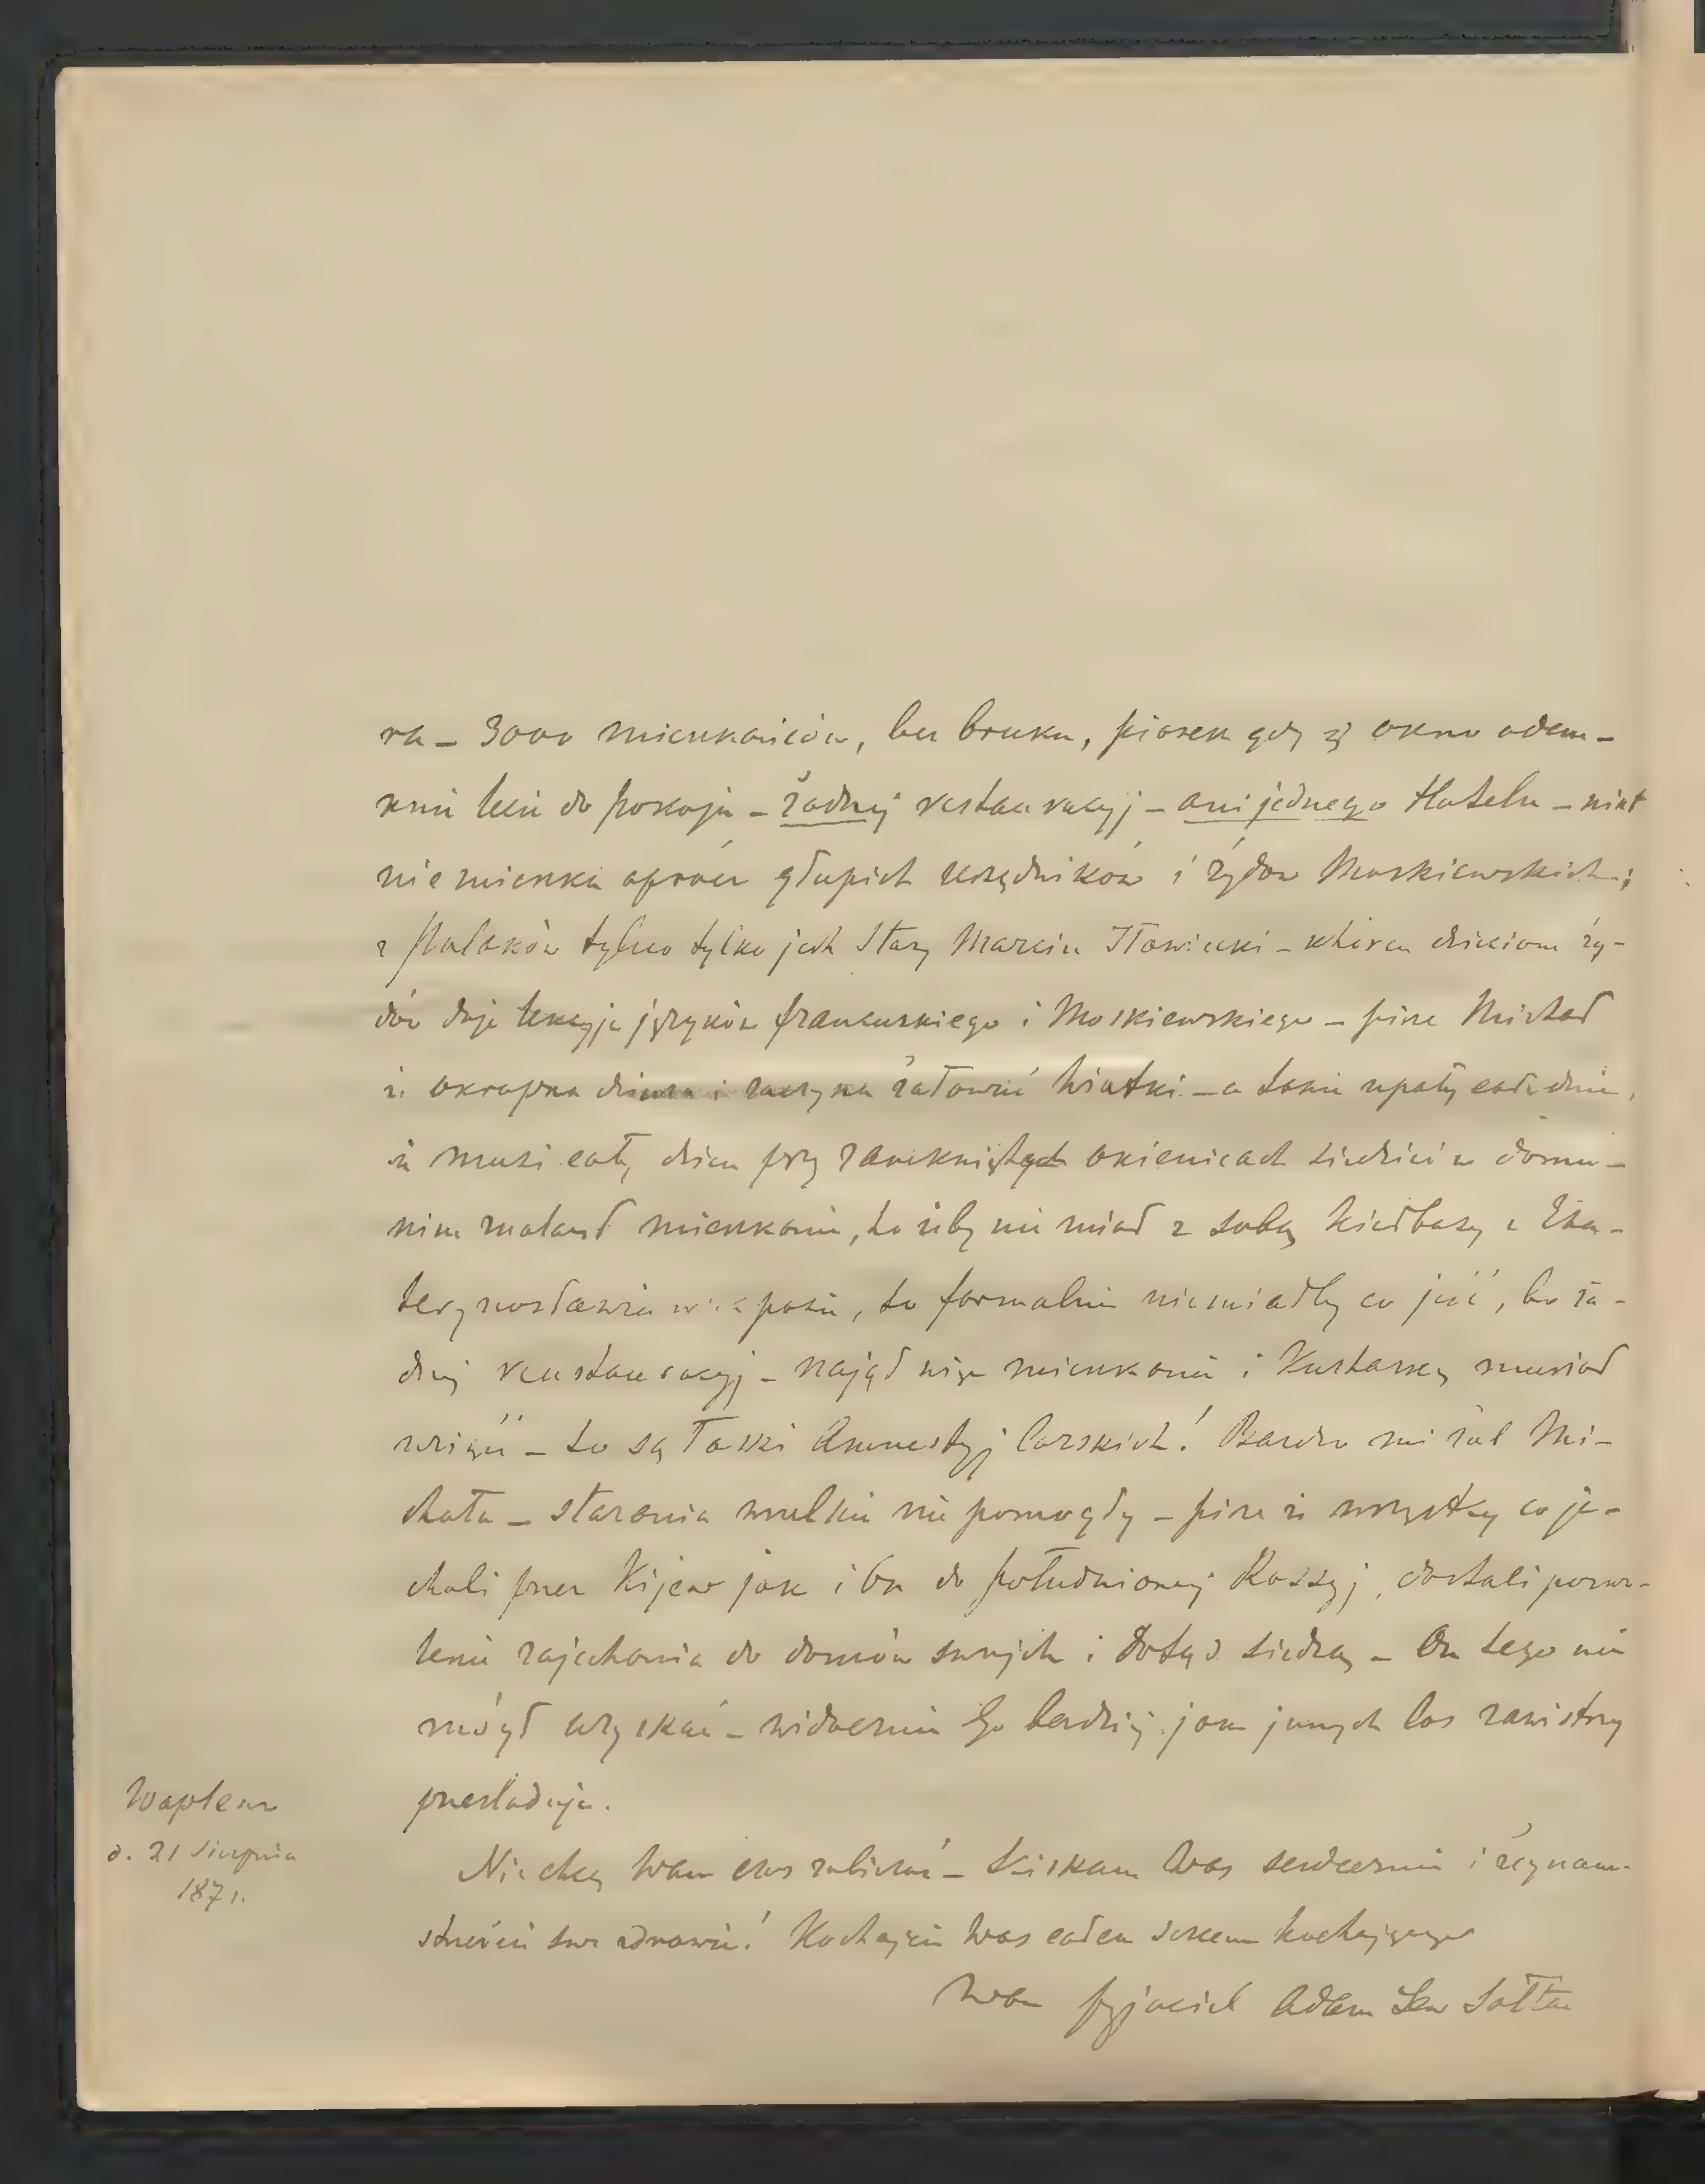 ra – 3000 mieszkańców, bez bruku, piasek gdy się okno odem-
knie leci do pokoju – żadnej restauracyj – ani jednego Hotelu – nikt
nie mieszka oprócz głupich urzędników i żydów Moskiewskich;
z Polaków tylko tylko jest Stary Marcin – dzieciom ży-
dów daje lekcyje języków francuzkiego i Moskiewskiego – pisze Michał
iż okropna dziura i zaczyna żałować Wiatki – a takie upały całe dnie,
iż musi cały dzień przy zamkniętych okienicach siedzieć w domu –
nim znalazł mieszkanie, to żeby nie miał z sobą kiełbasy z Eka-
terynosławia w zapasie, to formalnie niemiałby co jeść, bo ża-
dnej reustauracyj – najął więc mieszkanie i Kucharkę musiał
wziąść – to są Łaski Amnestyj Carskich! Bardzo mi żal Mi-
chała – starania wszelkie nie pomogły – pisze iż wszystkcy co je-
chali przez Kijew jak i On do południowej Rossyj, dostali pozwo-
lenie zajechania do domów swojich i dotąd siedzą – On tego nie
mógł uzyskać – widocznie Go bardziej jak jnnych los zawistny
prześladuje.
Niechcę Wam czas zabierać – Ściskam Was serdecznie i żegnam.
strzeżcie swe zdrowie! Kochajcie Was całem sercem kochającego
Wam przyjaciel Adam Lew Sołtan
Waplewo
d. 21 Sierpnia
1871.